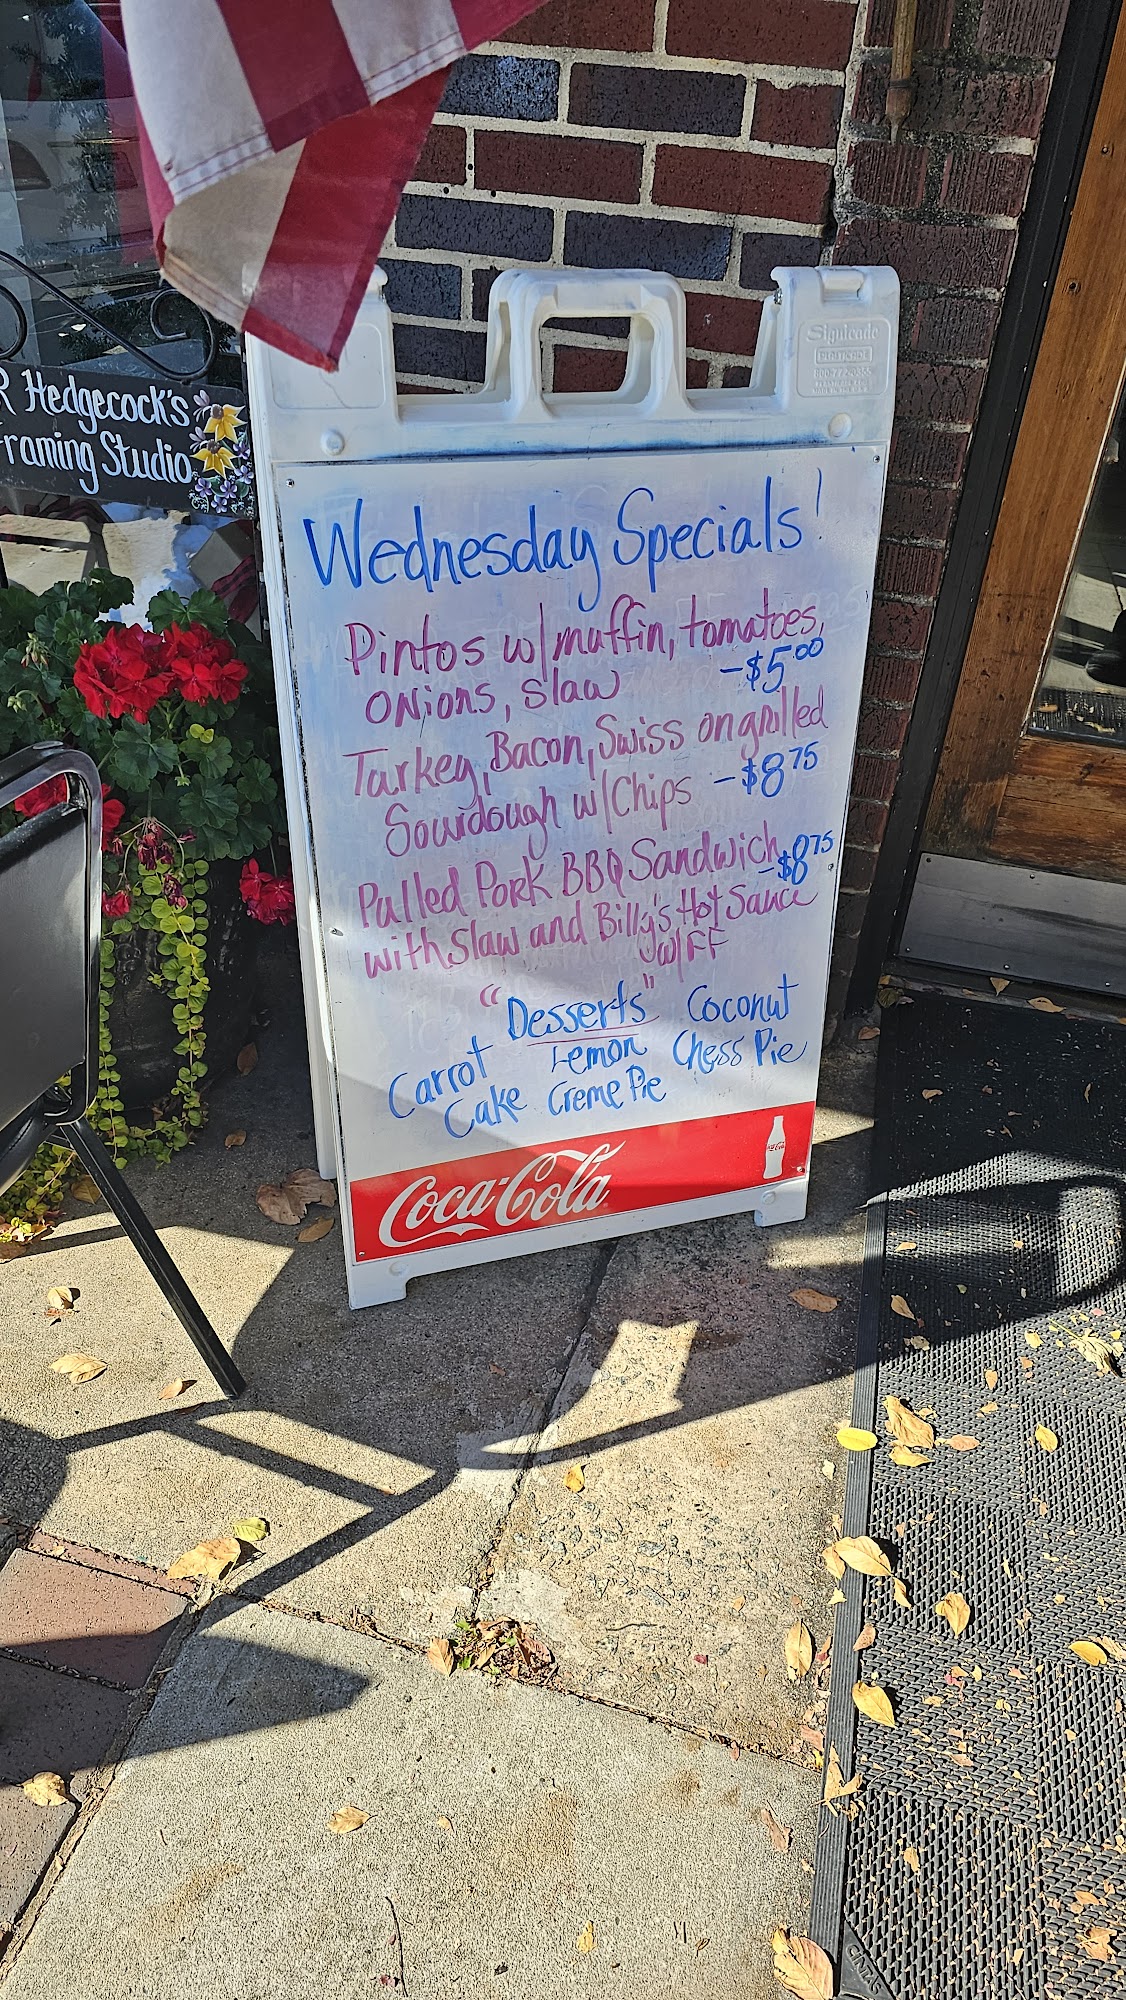 Signicade
800-772-0355
R Hedgecock's
Framing Studio
Wednesday Specials!
Pintos w/muffin, tomatoes,
onions, slaw -$5.00
Turkey, Bacon, Swiss on grilled
Sourdough w/Chips -$8.75
Pulled Pork BBQ Sandwich -$8.75
with slaw and Billy's Hot Sauce
w/FF
"Desserts"
Carrot Cake
Lemon Creme Pie
Coconut Chess Pie
Coca-Cola
CINTAS